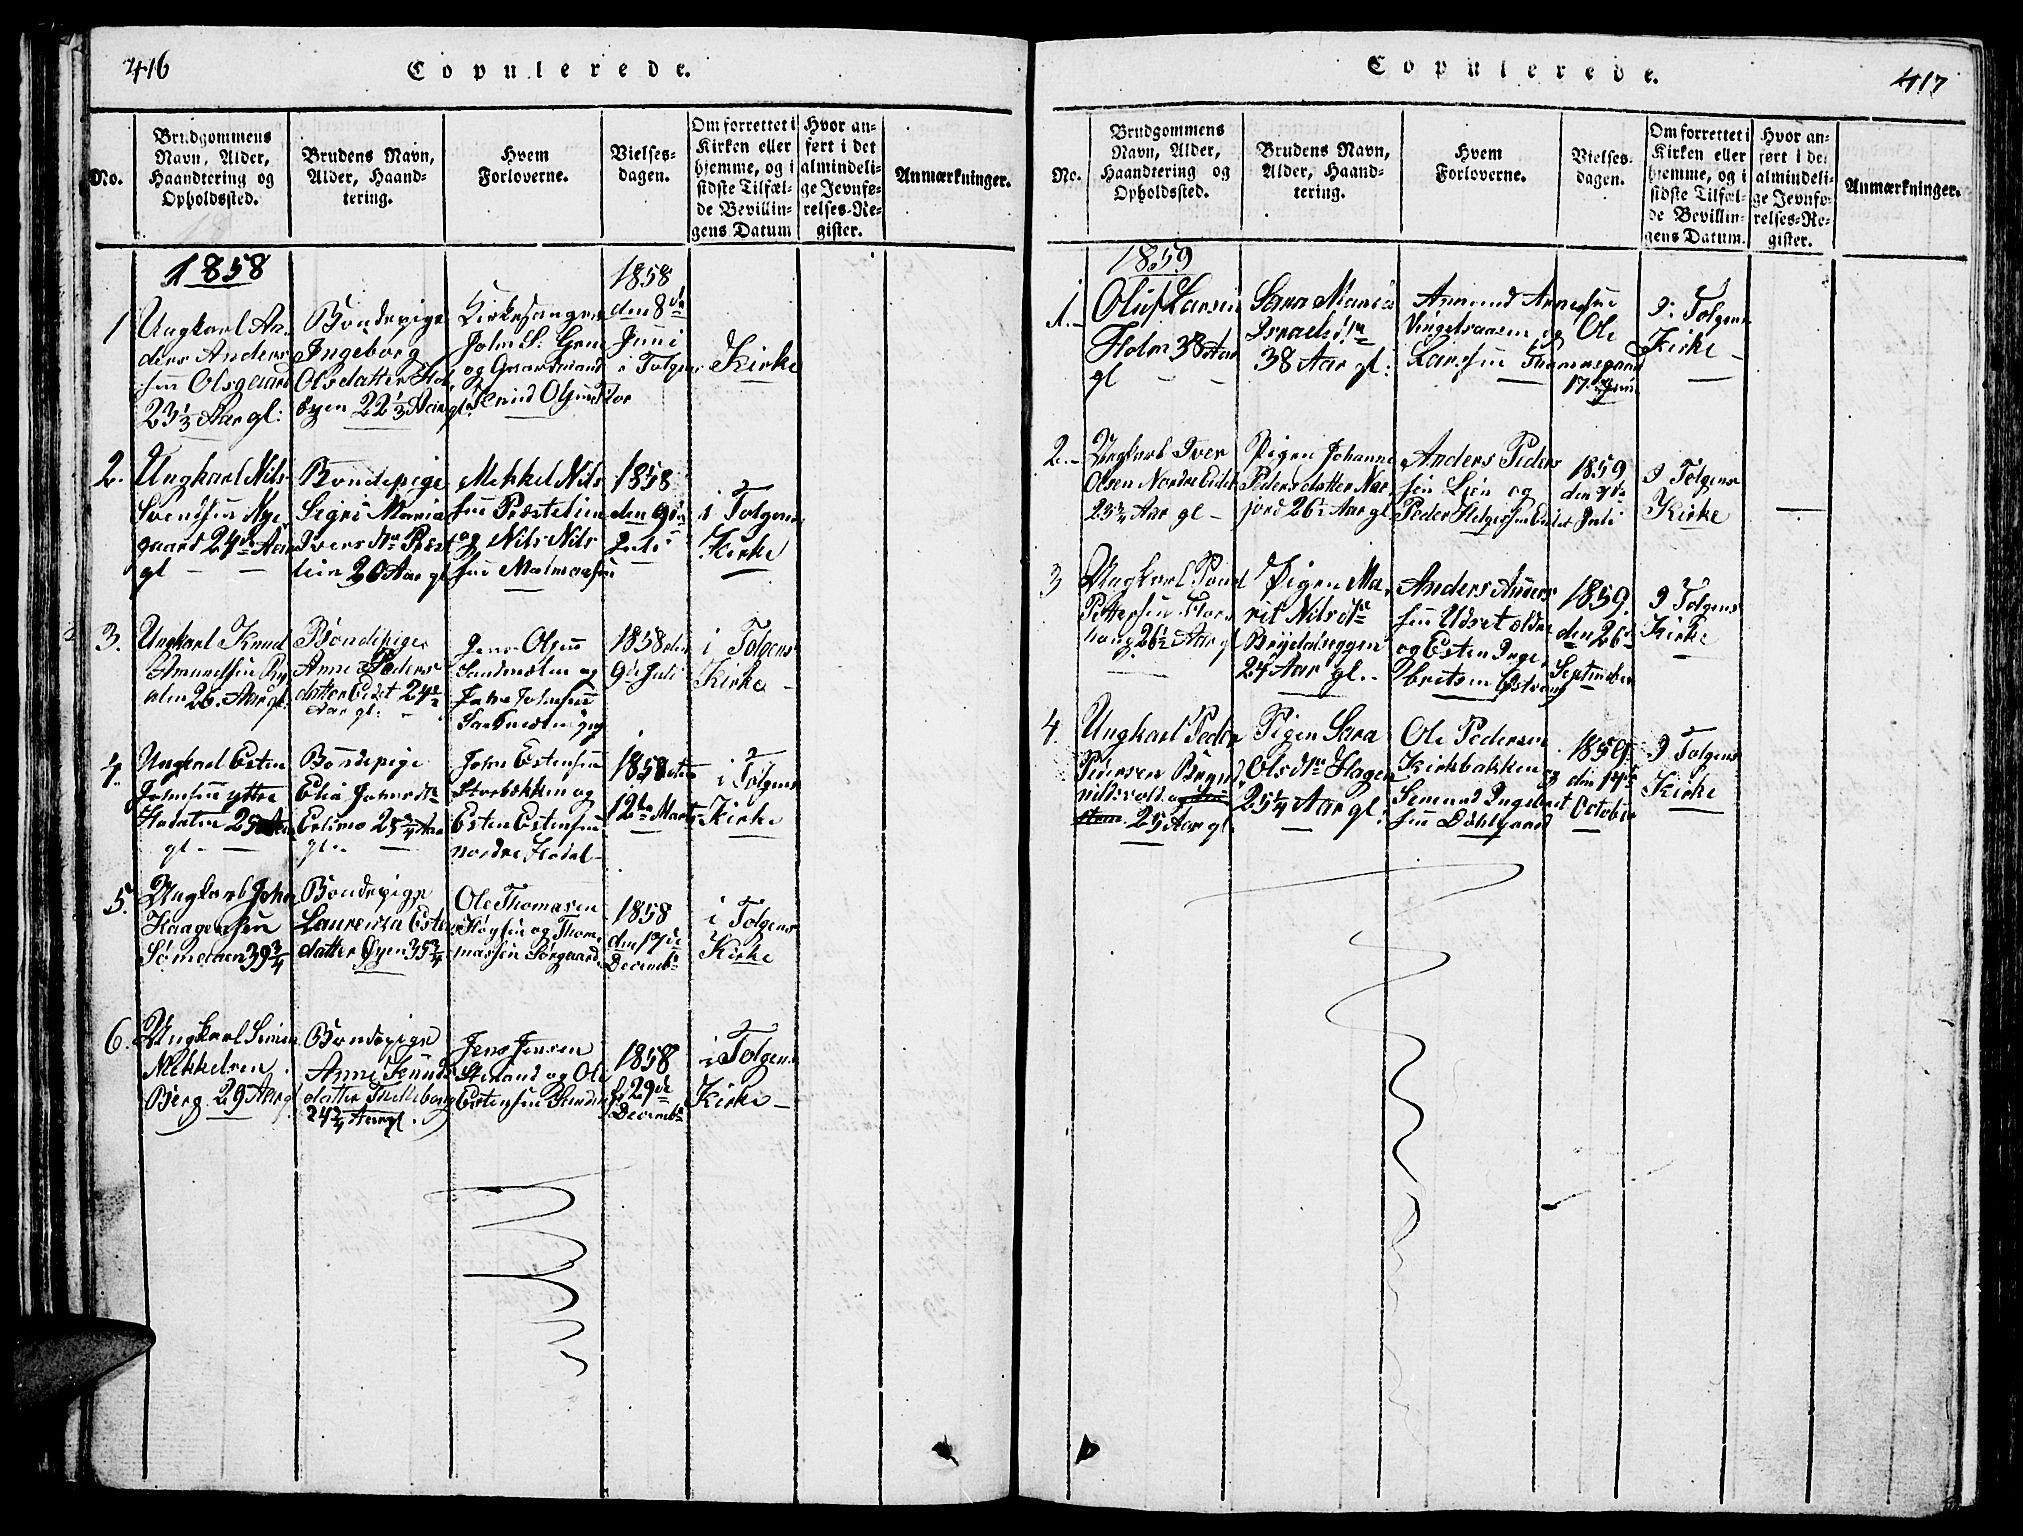 416
Copulerede.
No.
Brudgommens
Navn, Alder,
Haandtering og
Opholdssted.
Brudens Navn,
Alder, Haand-
tering.
Hvem
Forloverne.
Vielses-
dagen.
Om forrettet i
Kirken eller
hjemme, og i
sidste Tilfæl-
de Bevillin-
gens Datum
Hvor an-
ført i det
almindeli-
ge Jevnfø-
relses-Re-
gister.
Anmærkninger.
1858
1
Ungkarl An-
ders Anders
sen Olsgaard
23⅓ Aar gl:
Bondepige
Ingeborg
Olsdatter
22⅓ Aar gl.
Kirkesanger
John S.
og Gaardmand
Knud Olsen
1858
den 8de
Juni
i Tolgens
Kirke
2.
Ungkarl Nils
Svendsen Nye
gaard 24de Aar
gl
Bondepige
Sigri Maria
Ivers dtr Præst
lien 20 Aar gl
Mekkel Nils
sen Præstlien
og Nils Nils
sen Malmaasen
1858
den 9de
Juli
i Tolgens
Kirke
3.
Ungkarl Knud
Amundsen
26. Aar gl.
Bondepige
Anne Peders
datter Eidet 24
Aar gl:
Jens Olsen
Sandnæsten og
John Johnsen
1858 den
9de Juli
i Tolgens
Kirke
4.
Ungkarl Esten
Johnsen yttre
Hodalen 25 Aar
gl.
Bondepige
Johnsdtr
25¾ Aar
gl.
John Estensen
og
Esten Estensen
nordre Hodal
1858 den
12te Marts
i Tolgens
Kirke
5.
Ungkarl John
Haagensen
39¾
Bondepige
Laurenza Estens
datter Øyen 35¾
Ole Thomasen
og Thom
massen Sørgaard
1858
den 17de
Decembr
i Tolgens
Kirke
6.
Ungkarl Simen
Mekkelsen
Berg 29 Aar gl
Bondepige
Anne Knuds
datter
24¾ Aar gl.
Jens Jensen
og Ole
Estensen
1858
d. 29de
Decembr
i Tolgens
Kirke
Copulerede.
417
No.
Brudgommens
Navn, Alder,
Haandtering og
Opholdssted.
Brudens Navn,
Alder, Haand-
tering.
Hvem
Forloverne.
Vielses-
dagen.
Om forrettet i
Kirken eller
hjemme, og i
sidste Tilfæl-
de Bevillin-
gens Datum.
Hvor an-
ført i det
almindeli-
ge Jevnfø-
relses-Re-
gister.
Anmærkninger.
1859
1.
Oluf Larsen
Holm 38 Aar
gl
Sara Maria
Israelsdtr
38 Aar gl:
Amund Arnesen
Vingelsaasen og Ole
Larssen
17. Juni
I Tolgens
Kirke
2.
Ungkarl Iver
Olsen Nordre Eidet
23¾ Aar gl
Pigen Johanne
Pedersdatter Nar
jord 26½ Aar gl
Anders Peders
sen Lien og
Peder Helgesen
1859
den 7de
Juli
I Tolgens
Kirke
3
Ungkarl
Pettersen
26½ Aar gl
Pigen Ma
rit Nilsdtr
24 Aar gl.
Anders Anders
sen Udset ældre
og Esten Inge
britsen
1859.
den 26de
September
I Tolgens
Kirke
4.
Ungkarl Peder
Pedersen
25 Aar gl.
Pigen Sara
Olsdtr Hagen
25¼ Aar gl.
Ole Pedersen
Kirkbakken
Simend Ingebrit
sen Dahlgaard
1859.
den 14de
October
I Tolgens
Kirke